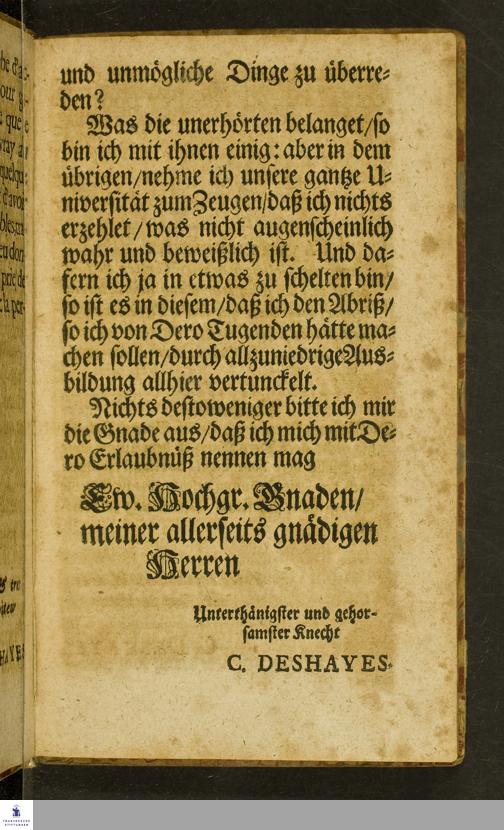 und unmögliche Dinge zu überre-
den?
Was die unerhörten belanget/so
bin ich mit ihnen einig: aber in dem
übrigen/nehme ich unsere gantze U-
niversität zum Zeugen/daß ich nichts
erzehlet/was nicht augenscheinlich
wahr und beweißlich ist. Und da-
fern ich ja in etwas zu schelten bin/
so ist es in diesem/daß ich den Abriß/
so ich von Dero Tugenden hätte ma-
chen sollen/durch allzuniedrige Aus-
bildung allhier vertunckelt.
Nichts destoweniger bitte ich mir
die Gnade aus/daß ich mich mit De-
ro Erlaubnüß nennen mag
Ew. Hochgr. Gnaden/
meiner allerseits gnädigen
Herren
Unterthänigster und gehor-
samster Knecht
C. DESHAYES.
FRANCKESCHE
STIFTUNGEN